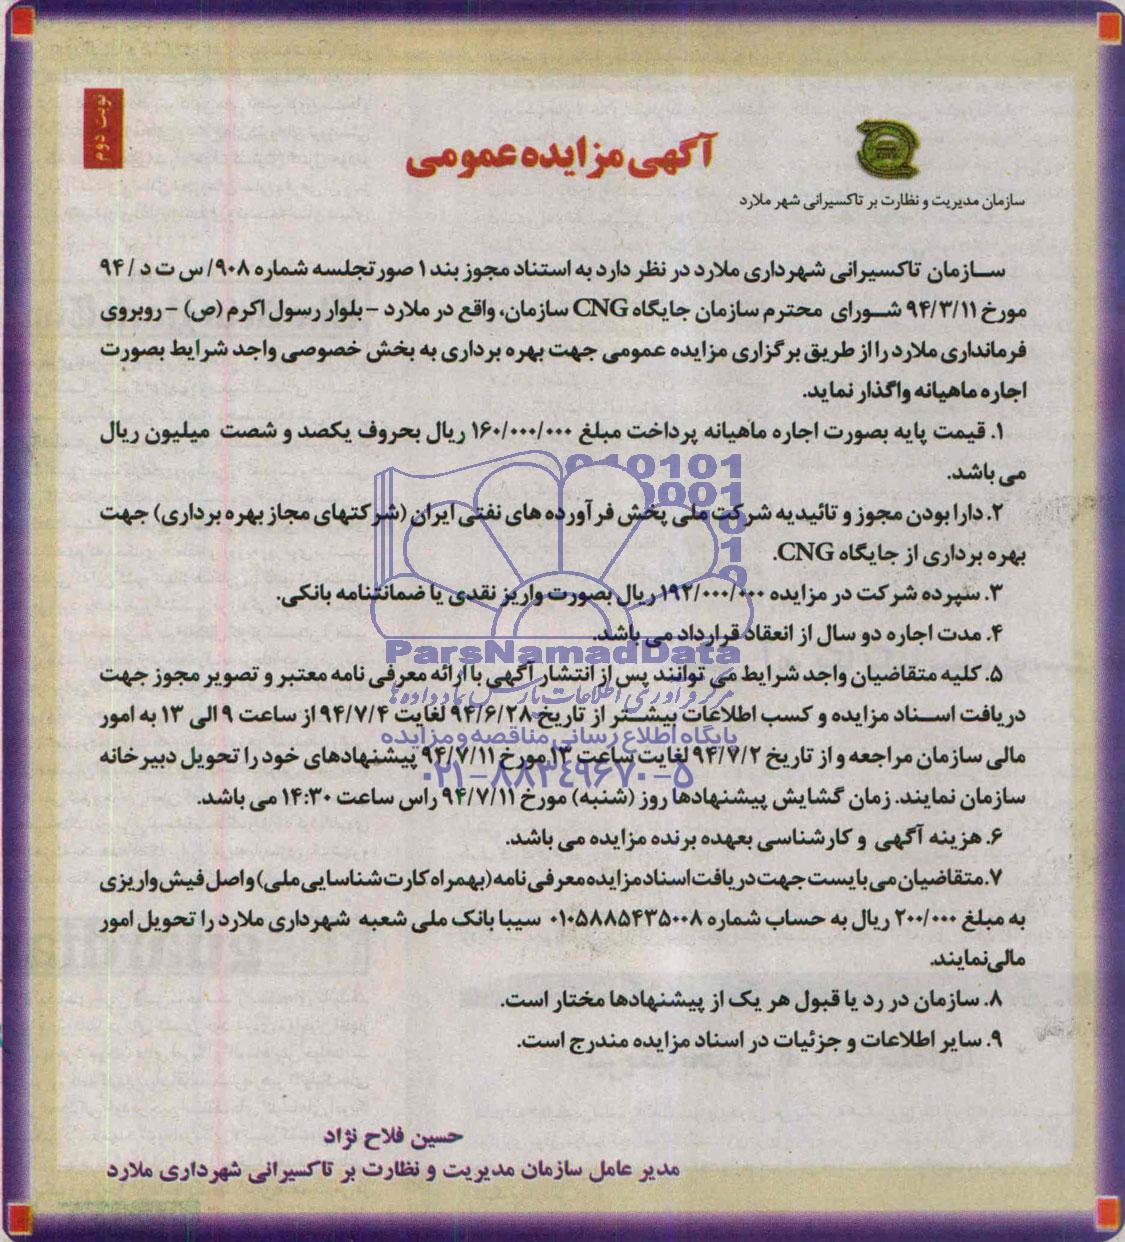 نوبت دوم
آگهی مزایده عمومی
سازمان مدیریت و نظارت بر تاکسیرانی شهر ملارد
سازمان تاکسیرانی شهرداری ملارد در نظر دارد به استناد مجوز بند ۱ صورتجلسه شماره ۹۰۸/ س ت د / ۹۴
مورخ ۹۴/۳/۱۱ شورای محترم سازمان جایگاه CNG سازمان، واقع در ملارد – بلوار رسول اکرم (ص) – روبروی
فرمانداری ملارد را از طریق برگزاری مزایده عمومی جهت بهره برداری به بخش خصوصی واجد شرایط بصورت
اجاره ماهیانه واگذار نماید.
۱. قیمت پایه بصورت اجاره ماهیانه پرداخت مبلغ ۱۶۰/۰۰۰/۰۰۰ ریال بحروف یکصد و شصت میلیون ریال
می باشد.
۲. دارا بودن مجوز و تائیدیه شرکت ملی پخش فرآورده های نفتی ایران (شرکتهای مجاز بهره برداری) جهت
بهره برداری از جایگاه CNG.
۳. سپرده شرکت در مزایده ۱۹۲/۰۰۰/۰۰۰ ریال بصورت واریز نقدی یا ضمانتنامه بانکی.
۴. مدت اجاره دو سال از انعقاد قرارداد می باشد.
ParsNamadData
۵. کلیه متقاضیان واجد شرایط می توانند پس از انتشار آگهی با ارائه معرفی نامه معتبر و تصویر مجوز جهت
مرکز فرآوری اطلاعات پارس نماد داده ها
دریافت اسناد مزایده و کسب اطلاعات بیشتر از تاریخ ۹۴/۶/۲۸ لغایت ۹۴/۷/۴ از ساعت ۹ الی ۱۳ به امور
پایگاه اطلاع رسانی مناقصه و مزایده
مالی سازمان مراجعه و از تاریخ ۹۴/۷/۲ لغایت ساعت ۱۳ مورخ ۹۴/۷/۱۱ پیشنهادهای خود را تحویل دبیرخانه
۰۲۱-۸۸۳۴۹۶۷۰-۵
سازمان نمایند. زمان گشایش پیشنهادها روز (شنبه) مورخ ۹۴/۷/۱۱ راس ساعت ۱۴:۳۰ می باشد.
۶. هزینه آگهی و کارشناسی بعهده برنده مزایده می باشد.
۷. متقاضیان می بایست جهت دریافت اسناد مزایده معرفی نامه (بهمراه کارت شناسایی ملی) و اصل فیش واریزی
به مبلغ ۲۰۰/۰۰۰ ریال به حساب شماره ۰۱۰۵۸۸۵۴۳۵۰۰۸ سیبا بانک ملی شعبه شهرداری ملارد را تحویل امور
مالی نمایند.
۸. سازمان در رد یا قبول هر یک از پیشنهادها مختار است.
۹. سایر اطلاعات و جزئیات در اسناد مزایده مندرج است.
حسین فلاح نژاد
مدیر عامل سازمان مدیریت و نظارت بر تاکسیرانی شهرداری ملارد